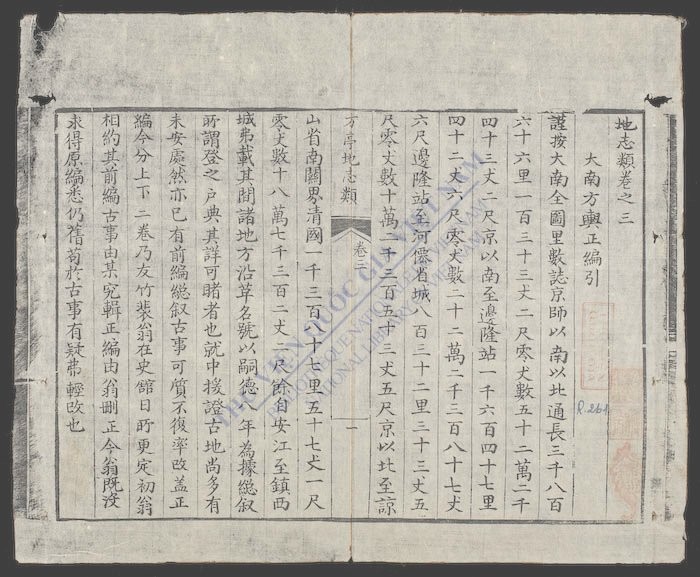 地志類卷之三
大南方輿正編引
謹按大南全圖里數誌京師以南以北通長三千八百
六十六里一百三十三丈二尺零丈數五十二萬二千
四十三丈二尺京以南至邊隆站一千六百四十七里
四十二丈六尺零丈數二十二萬二千三百八十七丈
六尺邊隆站至河僊省城八百三十二里三十三丈五
尺零丈數十萬二千三百五十三丈五尺京以北至諒
方亭地志類
卷三
一
山省南關界清國一千三百八十七里五十七丈一尺
零丈數十八萬七千三百二丈一尺餘自安江至鎮西
城弗載其間諸地方沿革名號以嗣德年為據總叙
所謂登之户典其詳可睹者也就中援證古地尚多有
未安處然亦已有前編總叙古事可質不復率改盖正
編今分上下二卷乃友竹裴翁在史館日所更定初翁
相約其前編古事由某究輯正編由翁刪正今翁既没
求得原編悉仍舊苟於古事有疑弗輕改也
R.261
THƯ VIỆN QUỐC GIA VIỆT NAM
NATIONAL LIBRARY OF VIETNAM